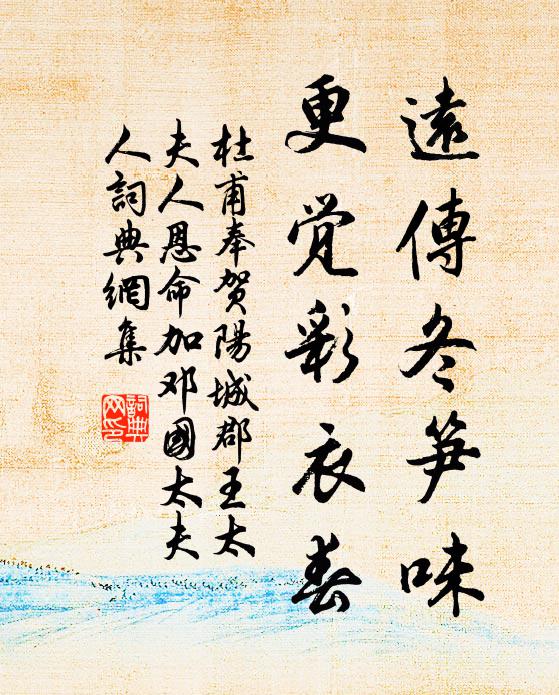 遠傳冬笋味
更觉彩衣春
杜甫奉贺陽城郡王太
夫人恩命加邓國太夫
人詞典網集
詞典
网印